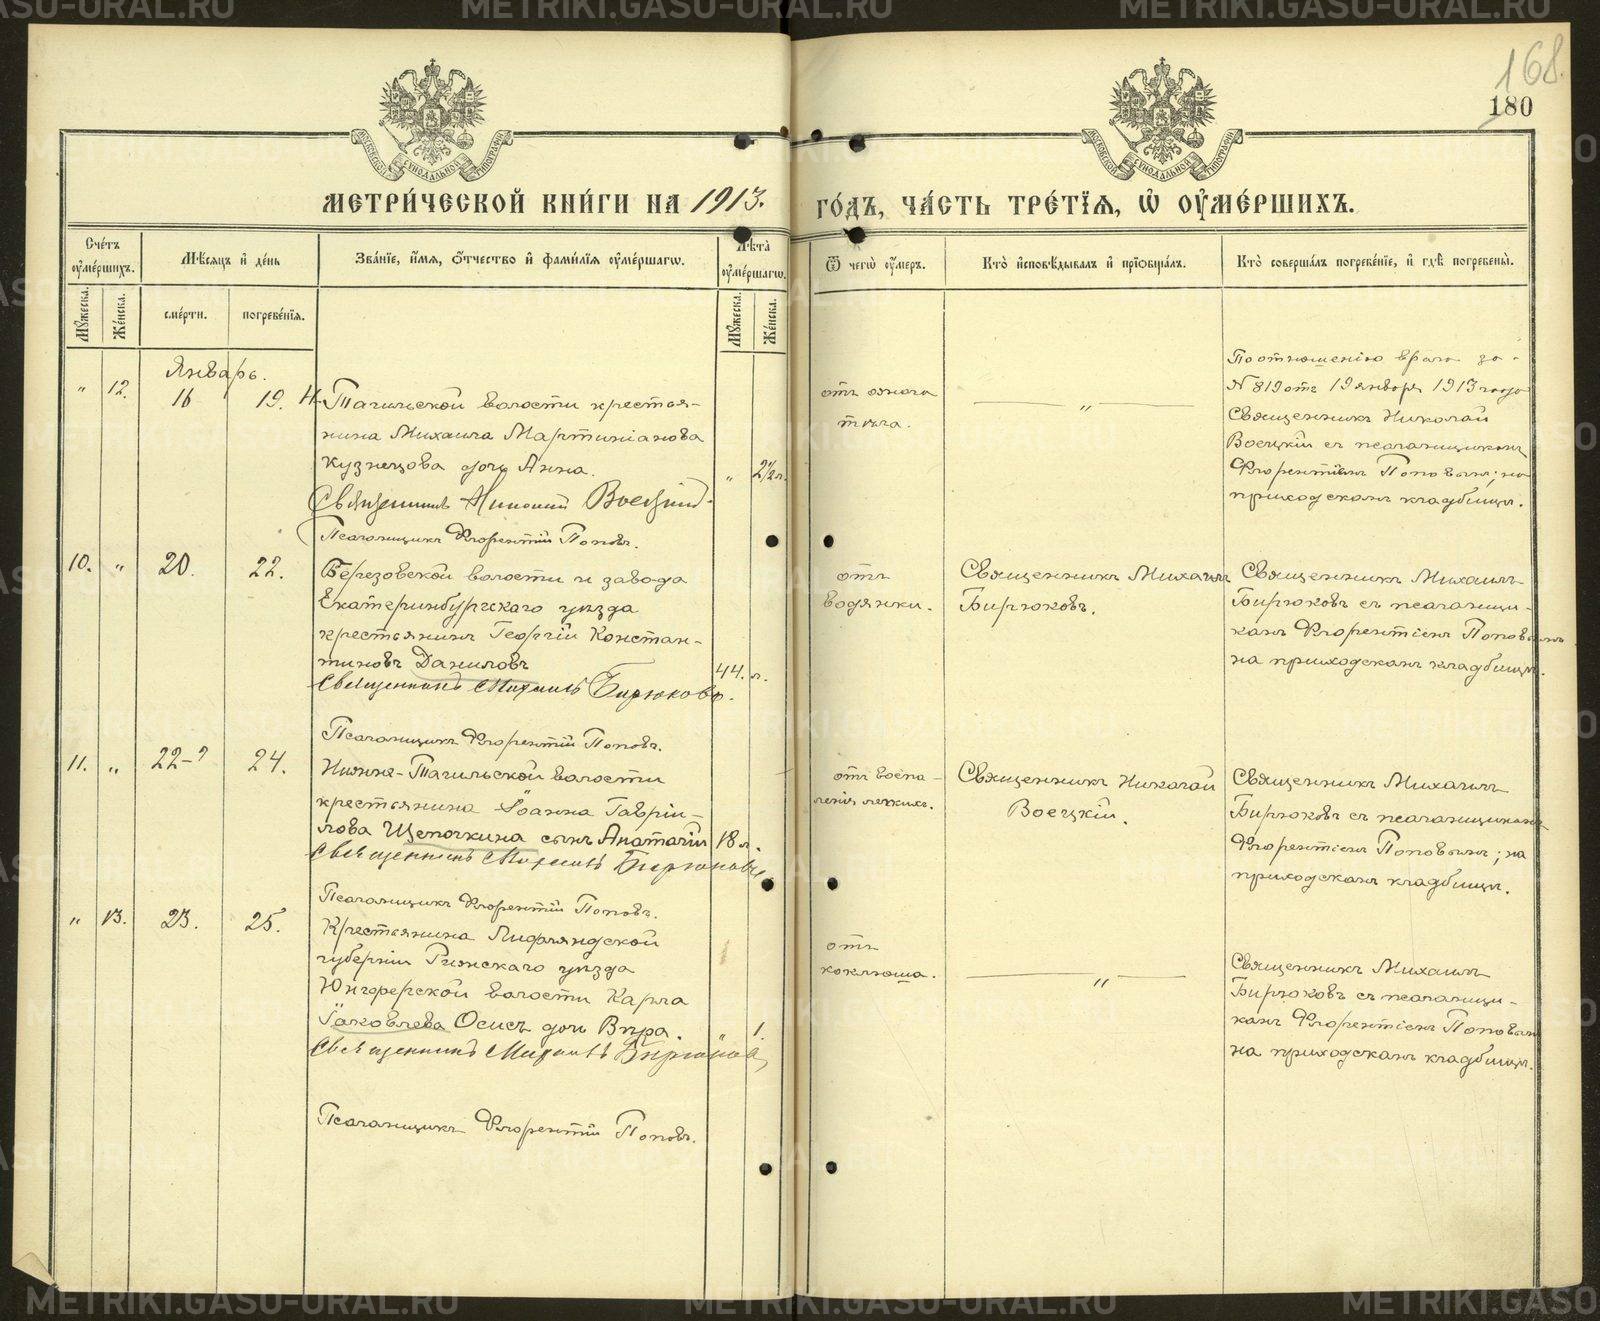 168.
180
МЕТРИ́ЧЕСКОЙ КНИ́ГИ НА 1913. ГО́ДЪ, ЧА́СТЬ ТРЕ́ТІЯ, Ѽ ОУ҆МЕ́РШИХЪ.
Сче́тъ оу҆ме́ршихъ.
Мѣсяцъ и҆ де́нь
Зва́ніе, и҆́мя, ѻ҆́тчество и҆ фами́лія оу҆ме́ршагѡ.
Лѣта̀ оу҆ме́ршагѡ.
Ѿ чегѡ̀ оу҆́меръ.
Кто̀ и҆сповѣ́дывалъ и҆ прїѻбща́лъ.
Кто̀ соверша́лъ погребе́ніе, и҆ гдѣ̀ погребены̀.
Мꙋ́жеска.
Же́нска.
сме́рти.
погребе́нія.
Мꙋ́жеска.
Же́нска.
Январь.
" 12. 16 19.
Н-Тагильской волости крестья-
нина Михаила Мартиніанова
Кузнецова дочь Анна.
" 2½ л.
Священникъ Николай Воецкій.
Псаломщикъ Флорентій Поповъ.
отъ ожога
тѣла.
"
По отношенію врача за
№ 819 отъ 19 января 1913 года
Священникъ Николай
Воецкій съ псаломщикомъ
Флорентіемъ Поповымъ; на
приходскомъ кладбищѣ.
10. " 20. 22.
Березовской волости и завода
Екатеринбургскаго уѣзда
крестьянинъ Георгій Констан-
тиновъ Даниловъ
44. л.
Священникъ Михаилъ Бирюковъ.
Псаломщикъ Флорентій Поповъ.
отъ
водянки.
Священникъ Михаилъ
Бирюковъ.
Священникъ Михаилъ
Бирюковъ съ псаломщи-
комъ Флорентіемъ Поповымъ
на приходскомъ кладбищѣ.
11. " 22-? 24.
Нижне-Тагильской волости
крестьянина Іоанна Гавріи-
лова Щепочкина сынъ Анатолій
18 л.
Священникъ Михаилъ Бирюковъ
Псаломщикъ Флорентій Поповъ.
отъ воспа-
ленія легкихъ.
Священникъ Николай
Воецкій.
Священникъ Михаилъ
Бирюковъ съ псаломщикомъ
Флорентіемъ Поповымъ; на
приходскомъ кладбищѣ.
" 13. 23. 25.
Крестьянина Лифляндской
губерніи Рижскаго уѣзда
Юнгоферской волости Карла
Іаковлева Осисъ дочь Вѣра.
" 1.
Священникъ Михаилъ Бирюковъ
Псаломщикъ Флорентій Поповъ.
отъ
коклюша.
"
Священникъ Михаилъ
Бирюковъ съ псаломщи-
комъ Флорентіемъ Поповымъ
на приходскомъ кладбищѣ.
METRIKI.GASO-URAL.RU